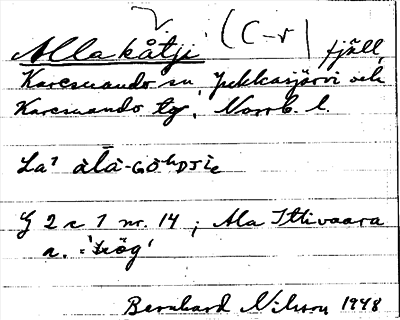 Allakåtji (C-r) fjäll,
Karesuando sn, Jukkasjärvi och
Karesuando tg, Norrb. l.
La¹ àlà-GÒʰDJIE
G 2 c 1 nr. 14; Ala Ittivaara
a. = 'hög'
Bernhard Nilsson 1948